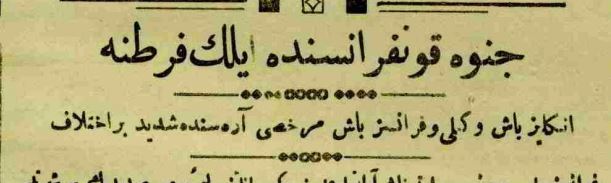 جنوه قونفرانسنده ایلك فرطنه
انكلیز باش وكیلی وفرانسز باش مرخصی آره سنده شدید بر اختلاف